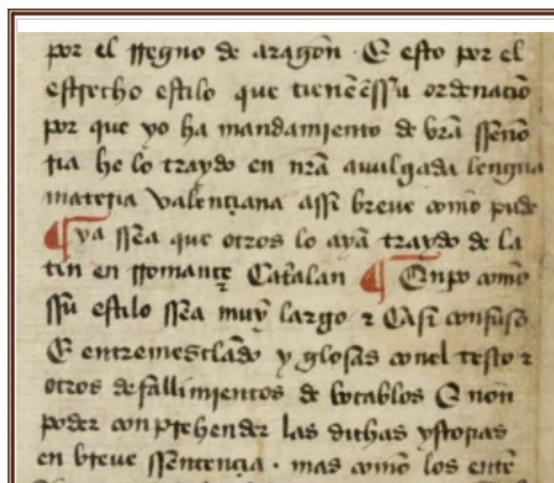 por el rregno de aragõn · E esto por el
estrecho estilo que tienẽ ẽ ssu ordenaciõ
por que yo ha mandamiento de vr̃a sseño
ria he lo traydo en nr̃a auulgada lengua
materia valençiana assi breue comõ pude
¶ ya ssea que otros lo ayã traydo de la
tin en rromançe Catalan ¶ Enpo como
ssu estilo ssea muỹ largo ⁊ Casi confuso
E entremesclãdo y glosas conel testo ⁊
otros defallimientos de bocablos E non
poder conprehender las dichas ystorias
en breue ssentençia · mas comõ los entẽ